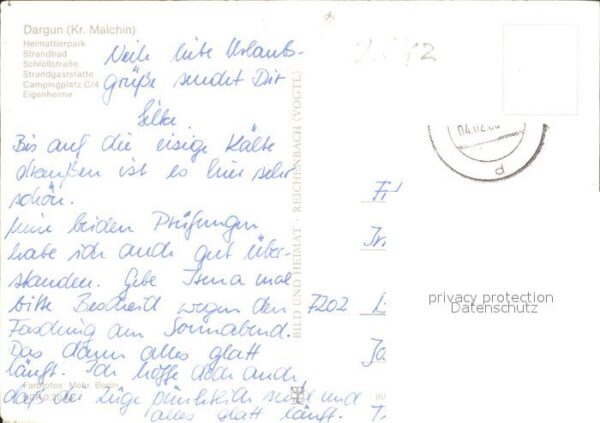 Dargun (Kr. Malchin)
Heimattierpark
Strandbad
Schloßstraße
Strandgaststätte
Campingplatz C/4
Eigenheime
liebe Urlaubs-
grüße sendet Dir
Silke.
Bis auf die eisige Kälte
draußen ist es hier sehr
schön.
Meine beiden Prüfungen
habe ich auch gut über-
standen. Gebe mal
bitte Bescheid wegen den
Fasching am Sonnabend.
Das dann alles glatt
läuft. Ich hoffe doch auch,
daß die Züge pünktlich sind und
alles glatt läuft.
Farbfotos: Mohr, Berlin
BILD UND HEIMAT · REICHENBACH (VOGTL)
7202
privacy protection
Datenschutz
d